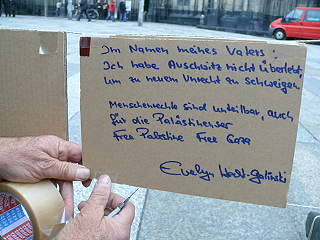 Im Namen meines Vaters:
Ich habe Auschwitz nicht überlebt,
um zu neuem Unrecht zu schweigen.
Menschenrechte sind unteilbar, auch
für die Palästinenser
Free Palestine Free Gaza
Evelyn Hecht-Galinski